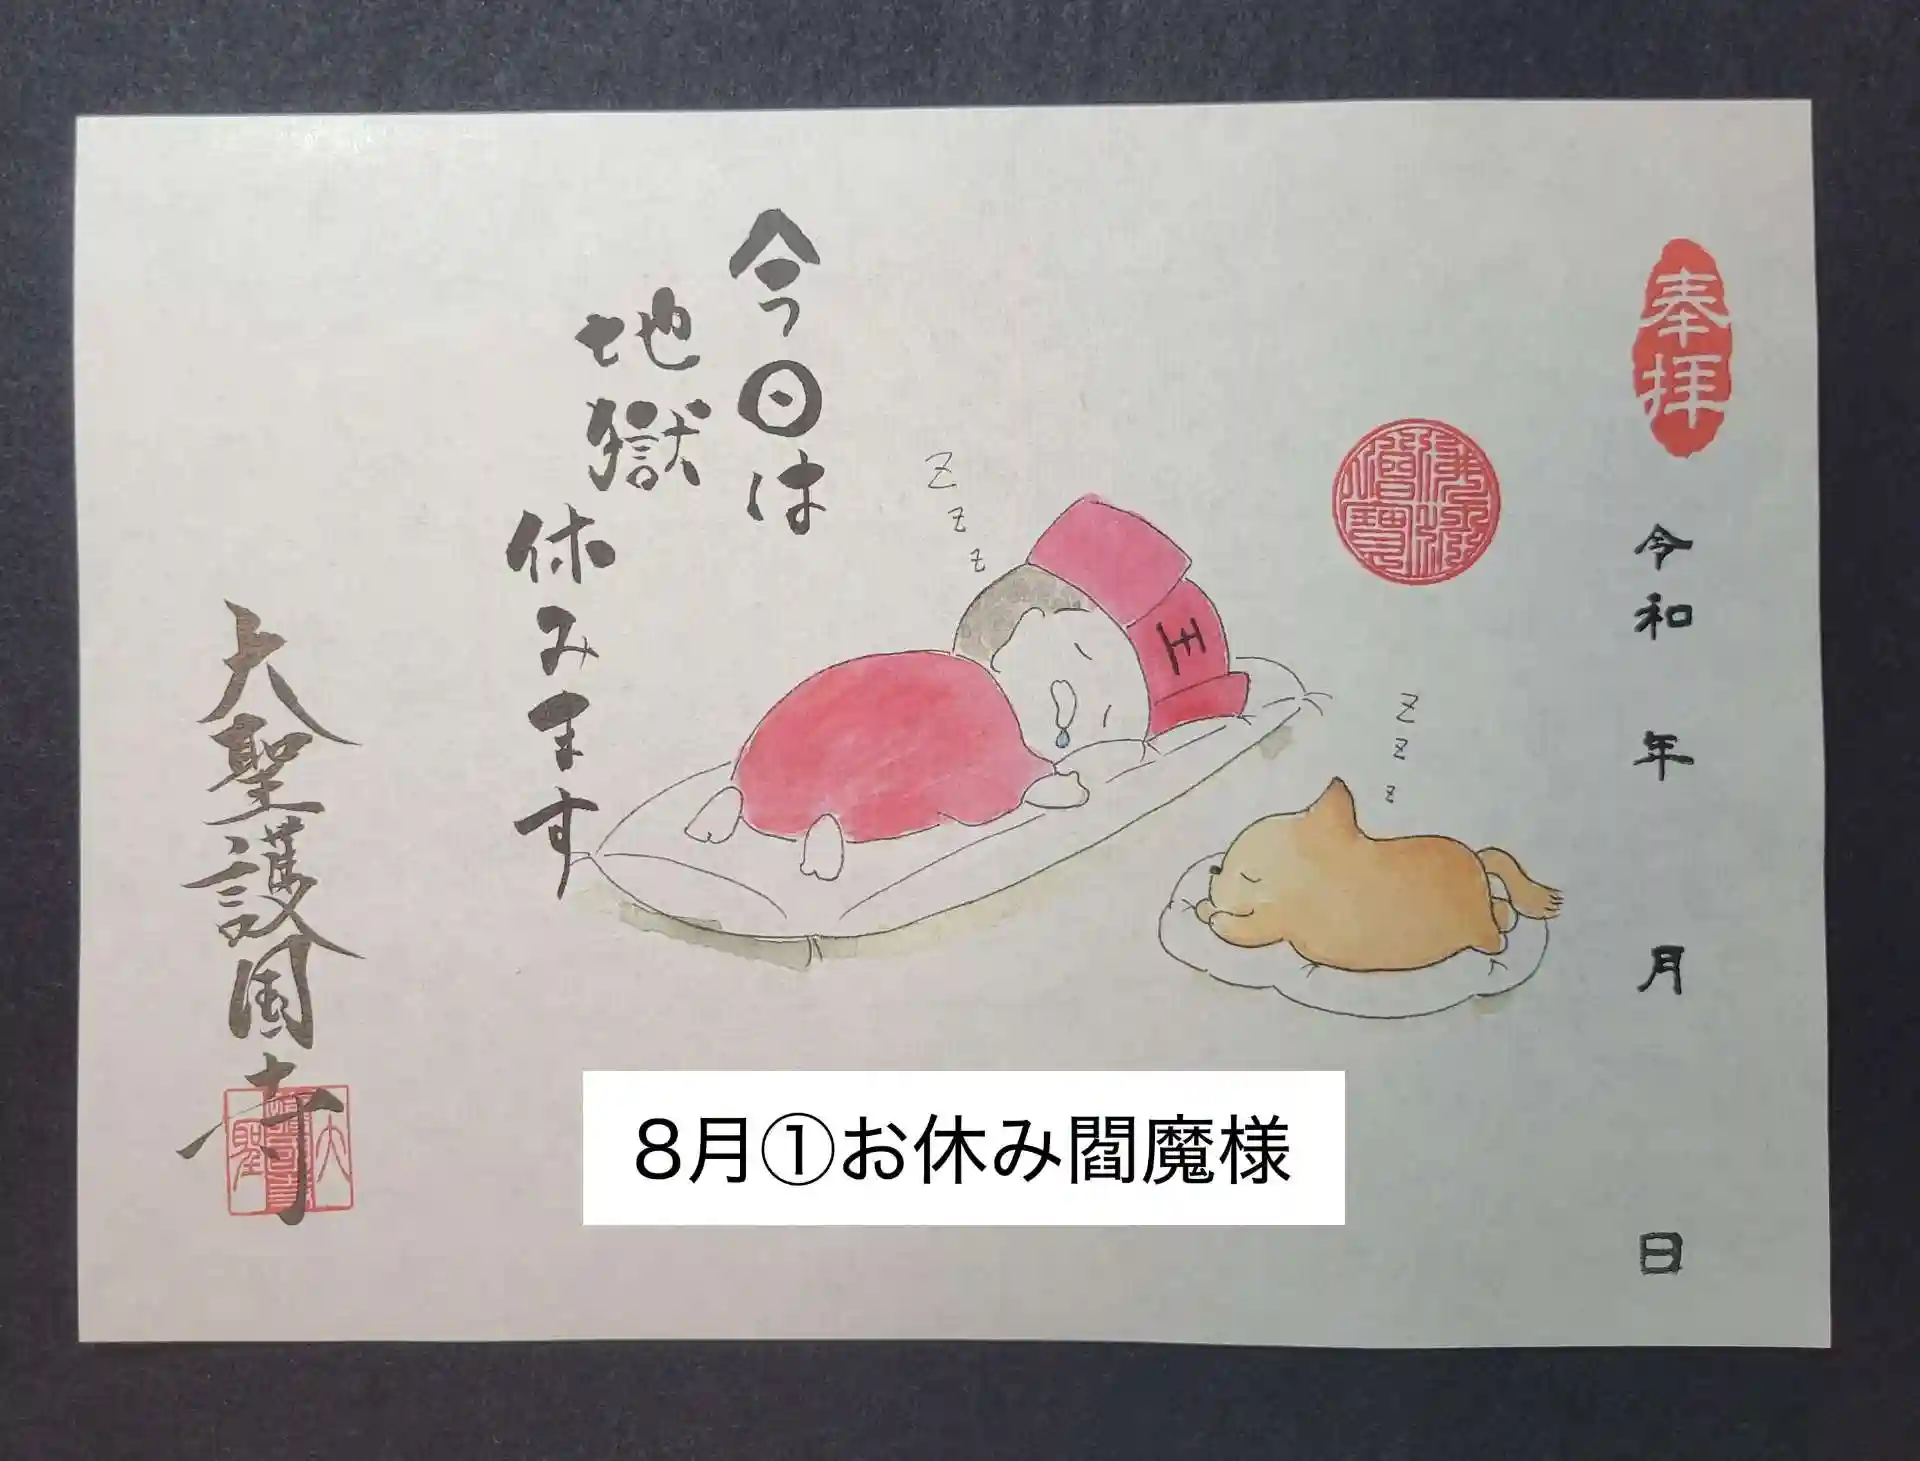 奉拝
令和 年 月 日
佛法僧寳
今日は
地獄
休みます
z z z
z z z
王
大聖護国寺
8月①お休み閻魔様